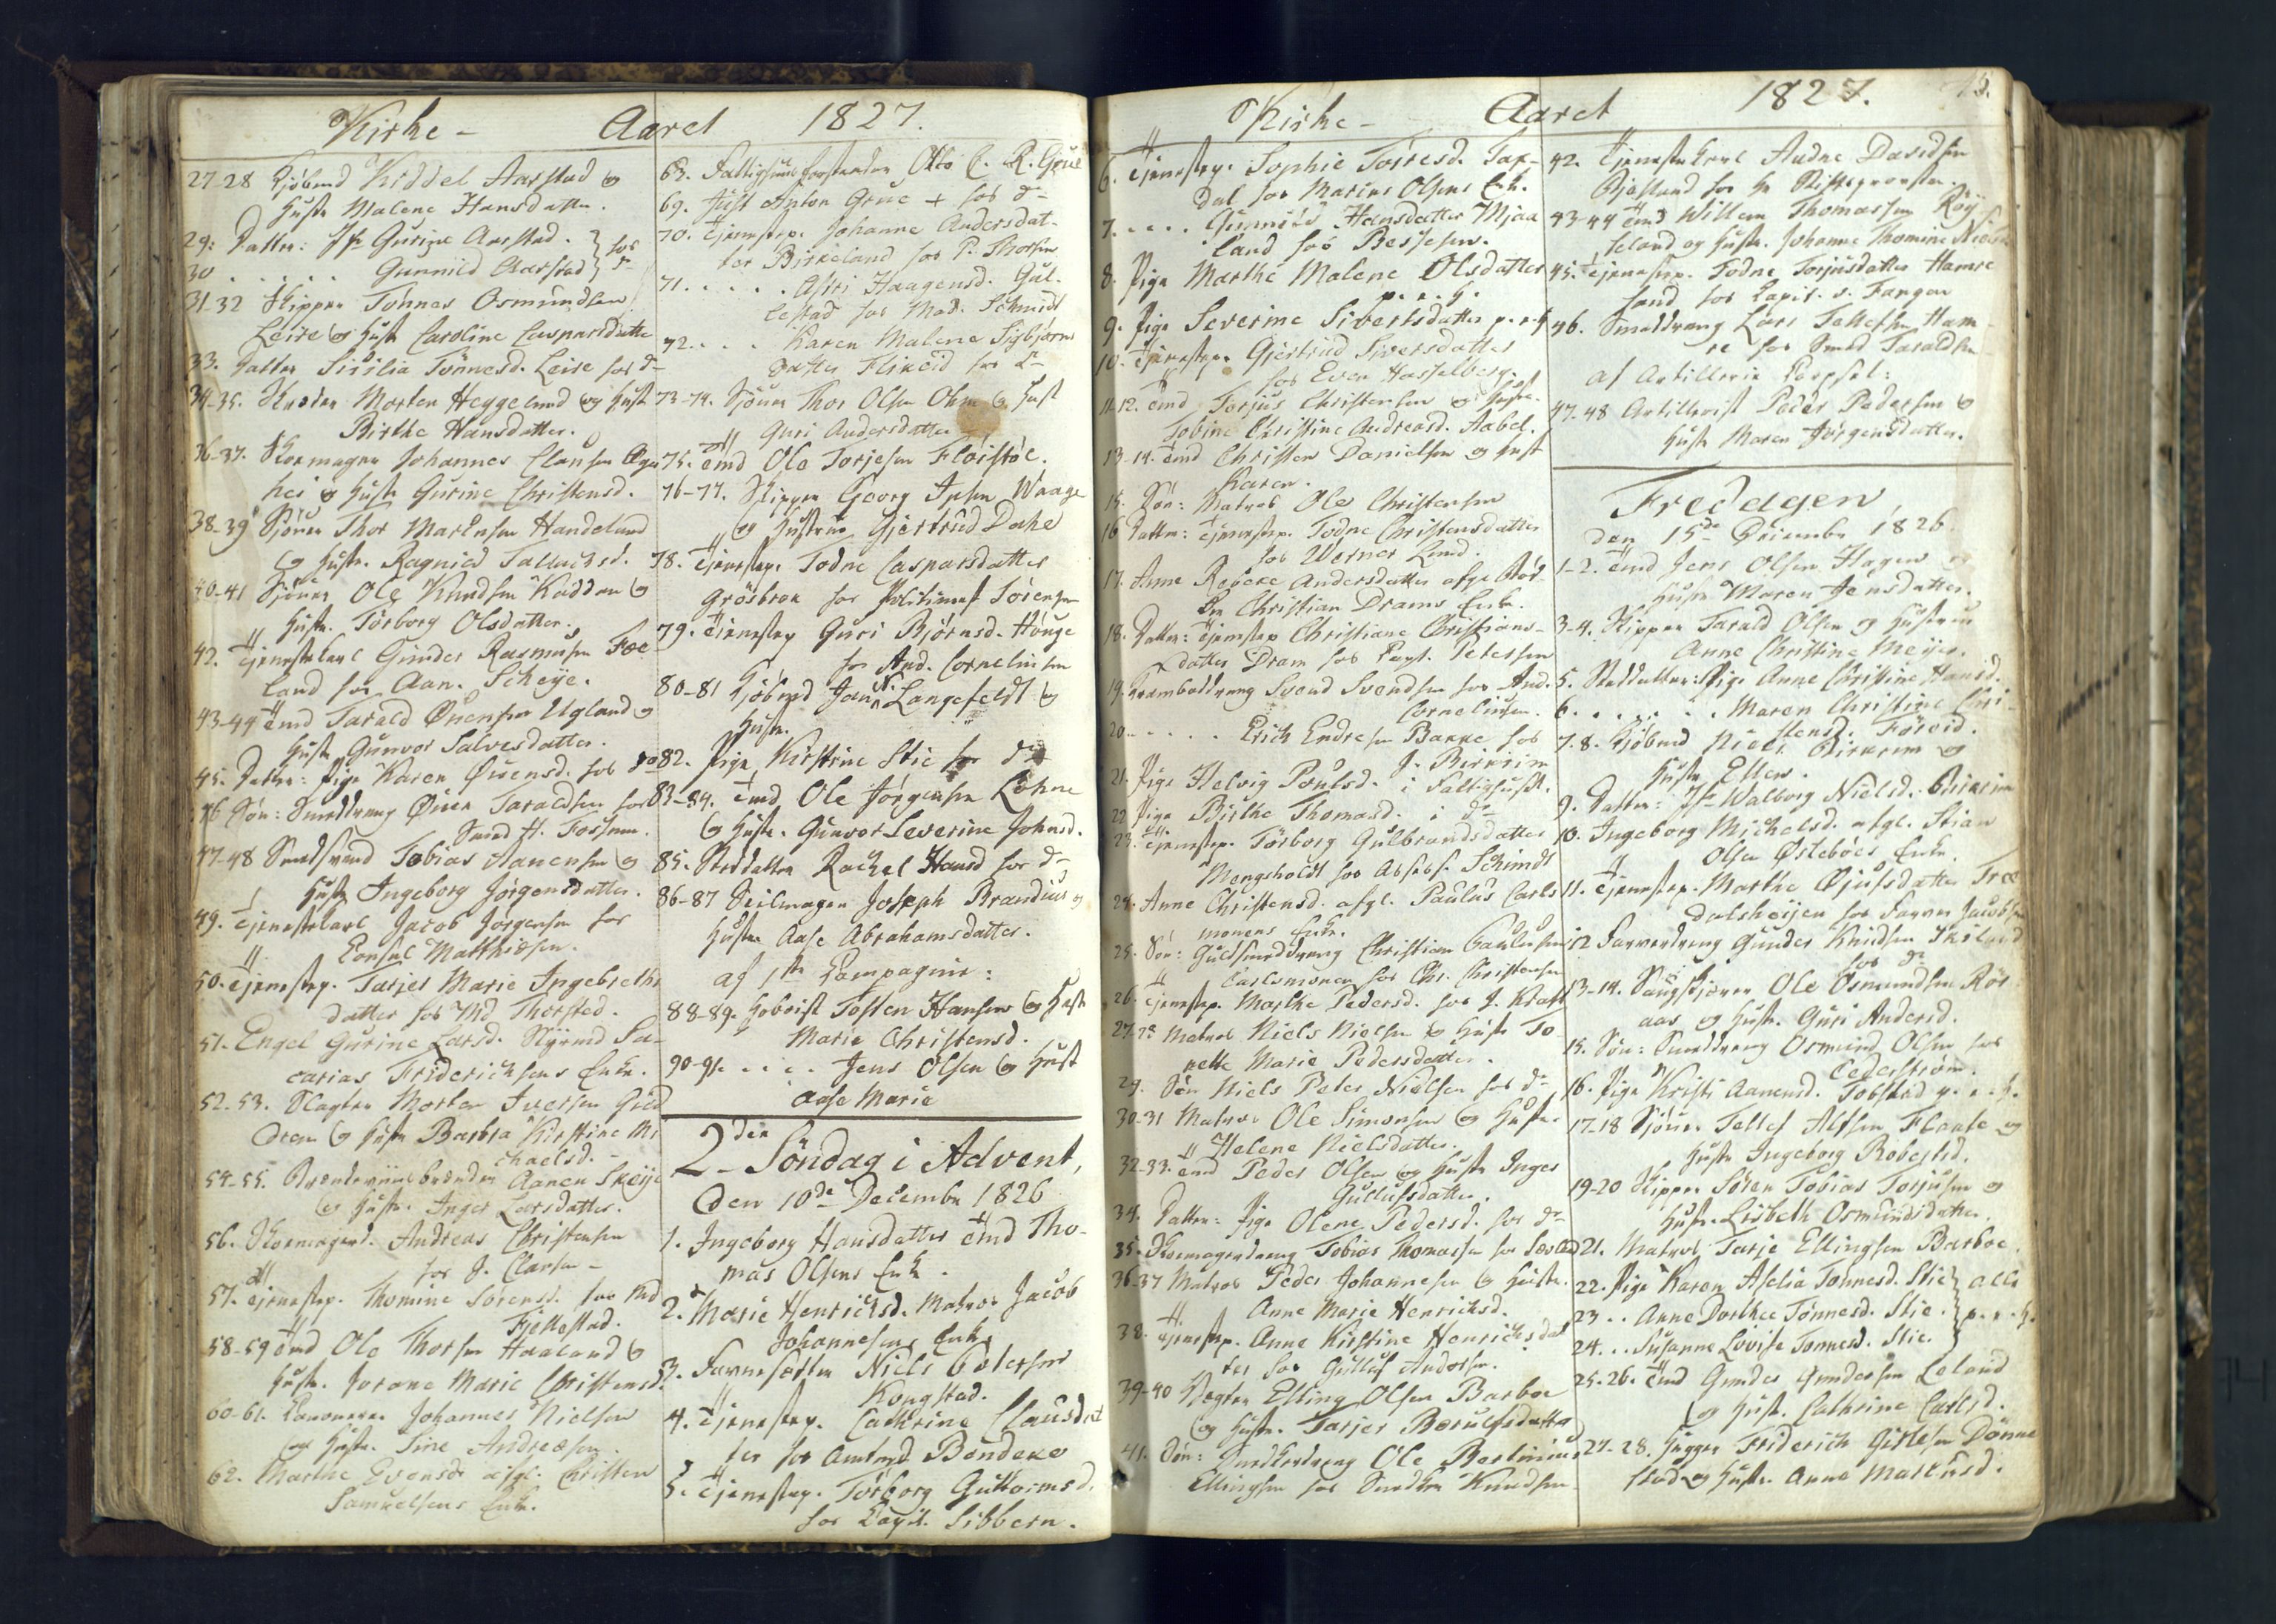 Kirke - Aaret 1827.
27-28 Kjøbmd Kiddel Aarstad og
Hustr Malene Hansdatter.
29: Datter: Jfr Gurine Aarstad.
30 . . . . . Gunnild Aarstad } hos do
31-32 Skipper Tønnes Osmundsen
Leire og Hustr Caroline Casparsdatter
33. Datter Sisilia Tønnesd. Leire hos do
34-35. Morten Heggelund og Hustr
Birthe Hansdatter.
36-37. Skomager Johannes Clausen
hei og Hustr Gurine Christensd.
38-39 Sjöuer Thor Martensen Handeland
og Hustr. Ragnild Salvesd.
40-41 Sjöuer Ole Knudsen Kodden og
Hustr. Torborg Olsdatter.
42. Tjenestekarl Gunder Rasmusen Foe-
land hos Aan. Scheye.
43-44 Tmd Tarald Øuensen Ugland og
Hustr Gunvor Salvesdatter.
45. Datter: Pige Karen Øuensd. hos do
46 Søn: Smeddreng Øuen Taraldsen hos
Smed H. Fossum.
47-48 Smedsvend Tobias Aanensen og
Hustr Ingeborg Jörgensdatter.
49. Tjenestekarl Jacob Jörgensen hos
Consul Matthiesen.
50. Tjenestep. Tarjer Marie Ingebreths
datter hos Md Thorsted.
51. Engel Gurine Larsd. Styrmd Sa-
carias Friderichsens Enke.
52-53. Slagter Morten Iversen Gild
drem og Hustr Barbra Kirstine Mi
chaelsd.
54-55. Brændeviinsbrænder Aanen Skeije
og Hustr. Inger Larsdatter.
56. Skomagerd. Andreas Christensen
hos J. Clausen
57. Tjenestep. Thomine Sørensd. hos Md
Fjellestad.
58-59 Tmd Ole Thorsen Haaland og
Hustr. Jorane Marie Christensd.
60-61. Canoneer Johannes Nielsen
og Hustr. Sine Andreasen.
62. Marthe Evensdr afgl. Christen
Samuelsens Enke.
63. Fattighuus Forstander Otto C. R. Grue
69. Just Anton Grue + hos do
70. Tjenestep. Johanne Andersdat-
ter Birkeland hos P. Thorsen
71. . . . . . Asiri Haagensd. Gul-
lestad hos Mad. Schmidt
72. . . . Karen Malene Sigbjørns
datter Flikeid hos do
73-74. Sjöuer Thor Olsen Ohm og Hust
Guri Andersdatter
75. Tmd Ole Torjesen Fløistøl.
76-77. Skipper Georg Ipsen Waage
og Hustrue Gjertrud Dahl
78. Tjenestep. Todne Casparsdatter
Grösbroe hos Politimest Sørensen
79. Tjenestep Guri Bjørnsd. Houge
hos And. Cornelinsen
80-81 Kjöbmd Jan N. Langefeldt og
Hustr.
82. Pige Kirstine Stie hos do
83-84. Tmd Ole Jörgensen Lohne
og Hustr. Gunvor Severine Johnsd.
85. Steddatter Rachel Hansd hos do
86-87 Seilmager Joseph Brandius og
Hustr Aase Abrahamsdatter.
af 1ste Compagnie:
88-89. Hoboist Tosten Hansen og Hustr
Marie Christensd.
90-91. . . . . Jens Olsen og Hust
Aase Marie
2den Söndag i Advent,
den 10de December 1826
1. Ingeborg Hansdatter Tmd Tho-
mas Olsens Enke.
2. Marie Henrichsd. Matros Jacob
Johannesens Enke
3. Farvesætter Niels Petersen
Kongstad.
4. Tjenestep. Cathrine Clausdat
ter hos Amtmd Bendeke
5. Tjenestep. Törborg Guttormsd.
hos Capit. Sibbern.
Kirke - Aaret 1827. 45.
6. Tjenestep. Sophie Torresd. Tax-
dal hos Marius Olsens Enke.
7. . . . . Gunnild Hansdatter Mjaa
land hos Bessesen.
8. Pige Marthe Malene Olsdatter
p. e. H.
9. Pige Severine Sivertsdatter p. e. H
10. Tjenestep. Gjertrud Siversdatter
hos Even Hasselberg.
11-12. Tmd Torjus Christensen og Hustr.
Tobine Christine Andreasd. Aabel.
13-14. Tmd Christen Danielsen og Hust
Karen.
15. Søn: Matros Ole Christensen
16 Datter: Tjenestep. Todne Christensdatter
hos Werner Lund.
17. Anne Rebeke Andersdatter afgl
Christian Drams Enke.
18. Datter: Tjenestep Christiane Christians-
datter Dram hos Capt. Petersen
19. Kramboddreng Svend Svendsen hos And.
Cornelinsen.
20. . . . . . Erich Endresen Bakke hos
J. Birkrim
21. Pige Helvig Poulsd. i Fattighuset.
22 Pige Birthe Thomasd. i do
23. Tjenestep. Törborg Gulbrandsdatter
Mengshold hos Assess. Schmidt
24. Anne Christensd. afgl. Paulus Carls
monens Enke.
25. Søn: Guldsmeddreng Christian Paulusen
Carlsmonen hos Chr. Christensen
26. Tjenestep. Marthe Pedersd. hos J. Kraft
27-28 Matros Niels Nielsen og Hustr To-
nette Marie Pedersdatter.
29. Søn Niels Peter Nielsen hos do
30-31 Matros Ole Simonsen og Hustr.
Helene Nielsdatter.
32-33. Tmd Peder Olsen og Hustr Inger
Gullufsdatter.
34. Datter: Pige Olene Pedersd. hos do
35. Skomagerdreng Tobias Thomassen hos
36-37 Matros Peder Johannesen og Hustr.
Anne Marie Henrichsd.
38. Tjenestep. Anne Kirstine Henrichsdat
ter hos Gulluf Andersen.
39-40 Vægter Elling Olsen Barboe
og Hustr. Tarjer Berulfsdatter
41. Søn: Ole Bertinius
Ellingsen hos Knudsen
42. Tjenestekarl Audne Davidsen
Bjelland hos Hr Stiftsprovsten.
43-44 Tmd Willem Thomassen Röj-
seland og Hustr. Johanne Thomine Niels
45. Tjenestep. Todne Torjusdatter Hamre
sand hos Capit. v. Fangen
46. Smeddreng Lars Tellefsen Ham
re hos Smed Taraldsen
af Artillerie Corpset:
47-48 Artillerist Peder Pedersen og
Hustr Maren Jörgensdatter.
Fredagen
den 15de December 1826.
1-2. Tmd Jens Olsen Hagen og
Hustr Maren Jensdatter.
3-4. Skipper Tarald Olsen og Hustrue
Anne Christine Meijer.
5. Steddatter: Pige Anne Christine Hansd.
6. . . . . . . Maren Christine Chri-
stensd. Förvid.
7.8. Kjöbmd Niels Birkrem og
Hustr Ellen.
9. Datter: Jfr Walborg Nielsd. Birkrim
10. Ingeborg Michelsd. afgl. Stian
Olsen Østeböes Enke.
11. Tjenestep. Marthe Øjufsdatter Træ
dalsheijen hos Farver Jacobsen
12 Farverdreng Gunder Knudsen Skiland
hos do
13-14. Ole Osmundsen Rös-
aas og Hustr. Guri Andersd.
15. Søn: Smeddreng Osmund Olsen hos
Cederström.
16. Pige Kristi Aanensd. Tobstad p. e. H.
17-18 Sjöuer Tellef Alfsen Flaate og
Hustr Ingeborg Robertsd.
19-20 Skipper Sören Tobias Torjusen og
Hustr. Lisbeth Osmundsdatter.
21. Matros Tarje Ellingsen Barboe.
22. Pige Karen Aselia Tønnesd. Stie } alle
23 . . Anne Dorthea Tønnesd. Stie. } p. e. H.
24. . . Susanne Lovise Tønnesd. Stie. }
25-26. Tmd Gunder Gundersen Leland
og Hustr. Cathrine Carlsd.
27-28. Hugger Friderich Gitlesen Dønne
stad og Hustr. Anne Markusd.